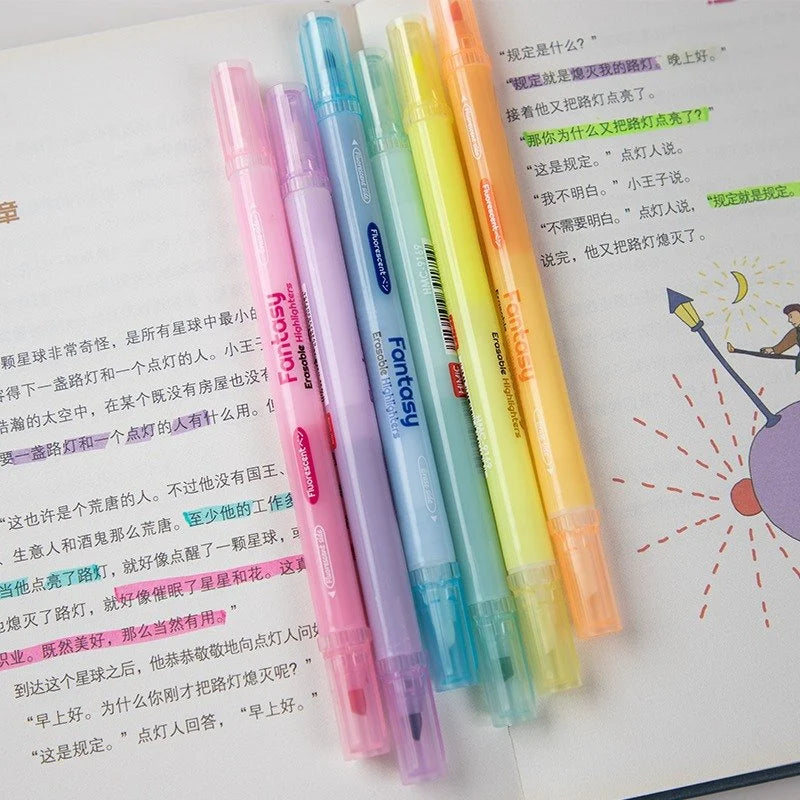 章
颗星球非常奇怪，是所有星球中最小的
容得下一盏路灯和一个点灯的人。小王子
浩瀚的太空中，在某个既没有房屋也没有
要一盏路灯和一个点灯的人有什么用。
“这也许是个荒唐的人。不过他没有国王、
、生意人和酒鬼那么荒唐。至少他的工作多
当他点亮了路灯，就好像点醒了一颗星球，或
他熄灭了路灯，就好像催眠了星星和花。这真
职业。既然美好，那么当然有用。”
到达这个星球之后，他恭恭敬敬地向点灯人问好
“早上好。为什么你刚才把路灯熄灭呢？”
“这是规定。”点灯人回答，“早上好。”
Fantasy
Erasable Highlighters
Fluorescentペン
Fluorescent side
Fluorescent side
Fluorescentペン
Fantasy
Erasable Highlighters
Erase side
Erasable Highlighters
Fluorescentペン
Fantasy
“规定是什么？”
“规定就是熄灭我的路灯。晚上好。”
接着他又把路灯点亮了。
“那你为什么又把路灯点亮了？”
“这是规定。”点灯人说。
“我不明白。”小王子说。
“不需要明白。”点灯人说，“规定就是规定。
说完，他又把路灯熄灭了。